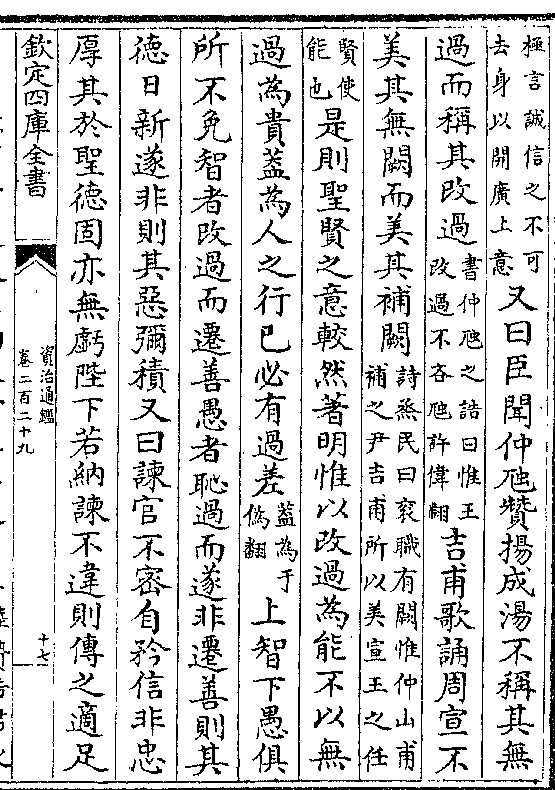 極言誠信之不可
去身以開廣上意
又曰臣聞仲虺贊揚成湯不稱其無
過而稱其改過
書仲虺之誥曰惟王
改過不吝虺許偉翻
吉甫歌誦周宣不
美其無闕而美其補闕
詩烝民曰袞職有闕惟仲山甫
補之尹吉甫所以美宣王之任
賢使
能也
是則聖賢之意較然著明惟以改過為能不以無
過為貴蓋為人之行已必有過差
蓋為于
偽翻
上智下愚俱
所不免智者改過而遷善愚者恥過而遂非遷善則其
德日新遂非則其惡彌積又曰諫官不密自矜信非忠
厚其於聖德固亦無虧陛下若納諫不違則傳之適足
欽定四庫全書
資治通鑑
卷二百二十九
十七